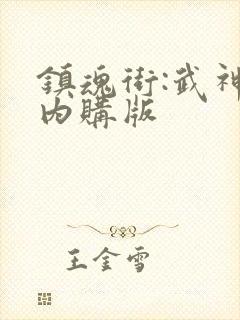 鎮魂街:武神
內購版
王金雪